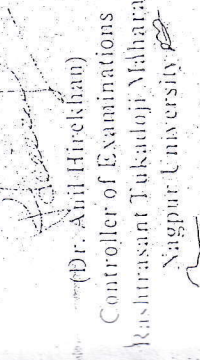 (Dr. Anil Hirekhan)
Controller of Examinations
Rashtrasant Tukadoji Mahara
Nagpur University